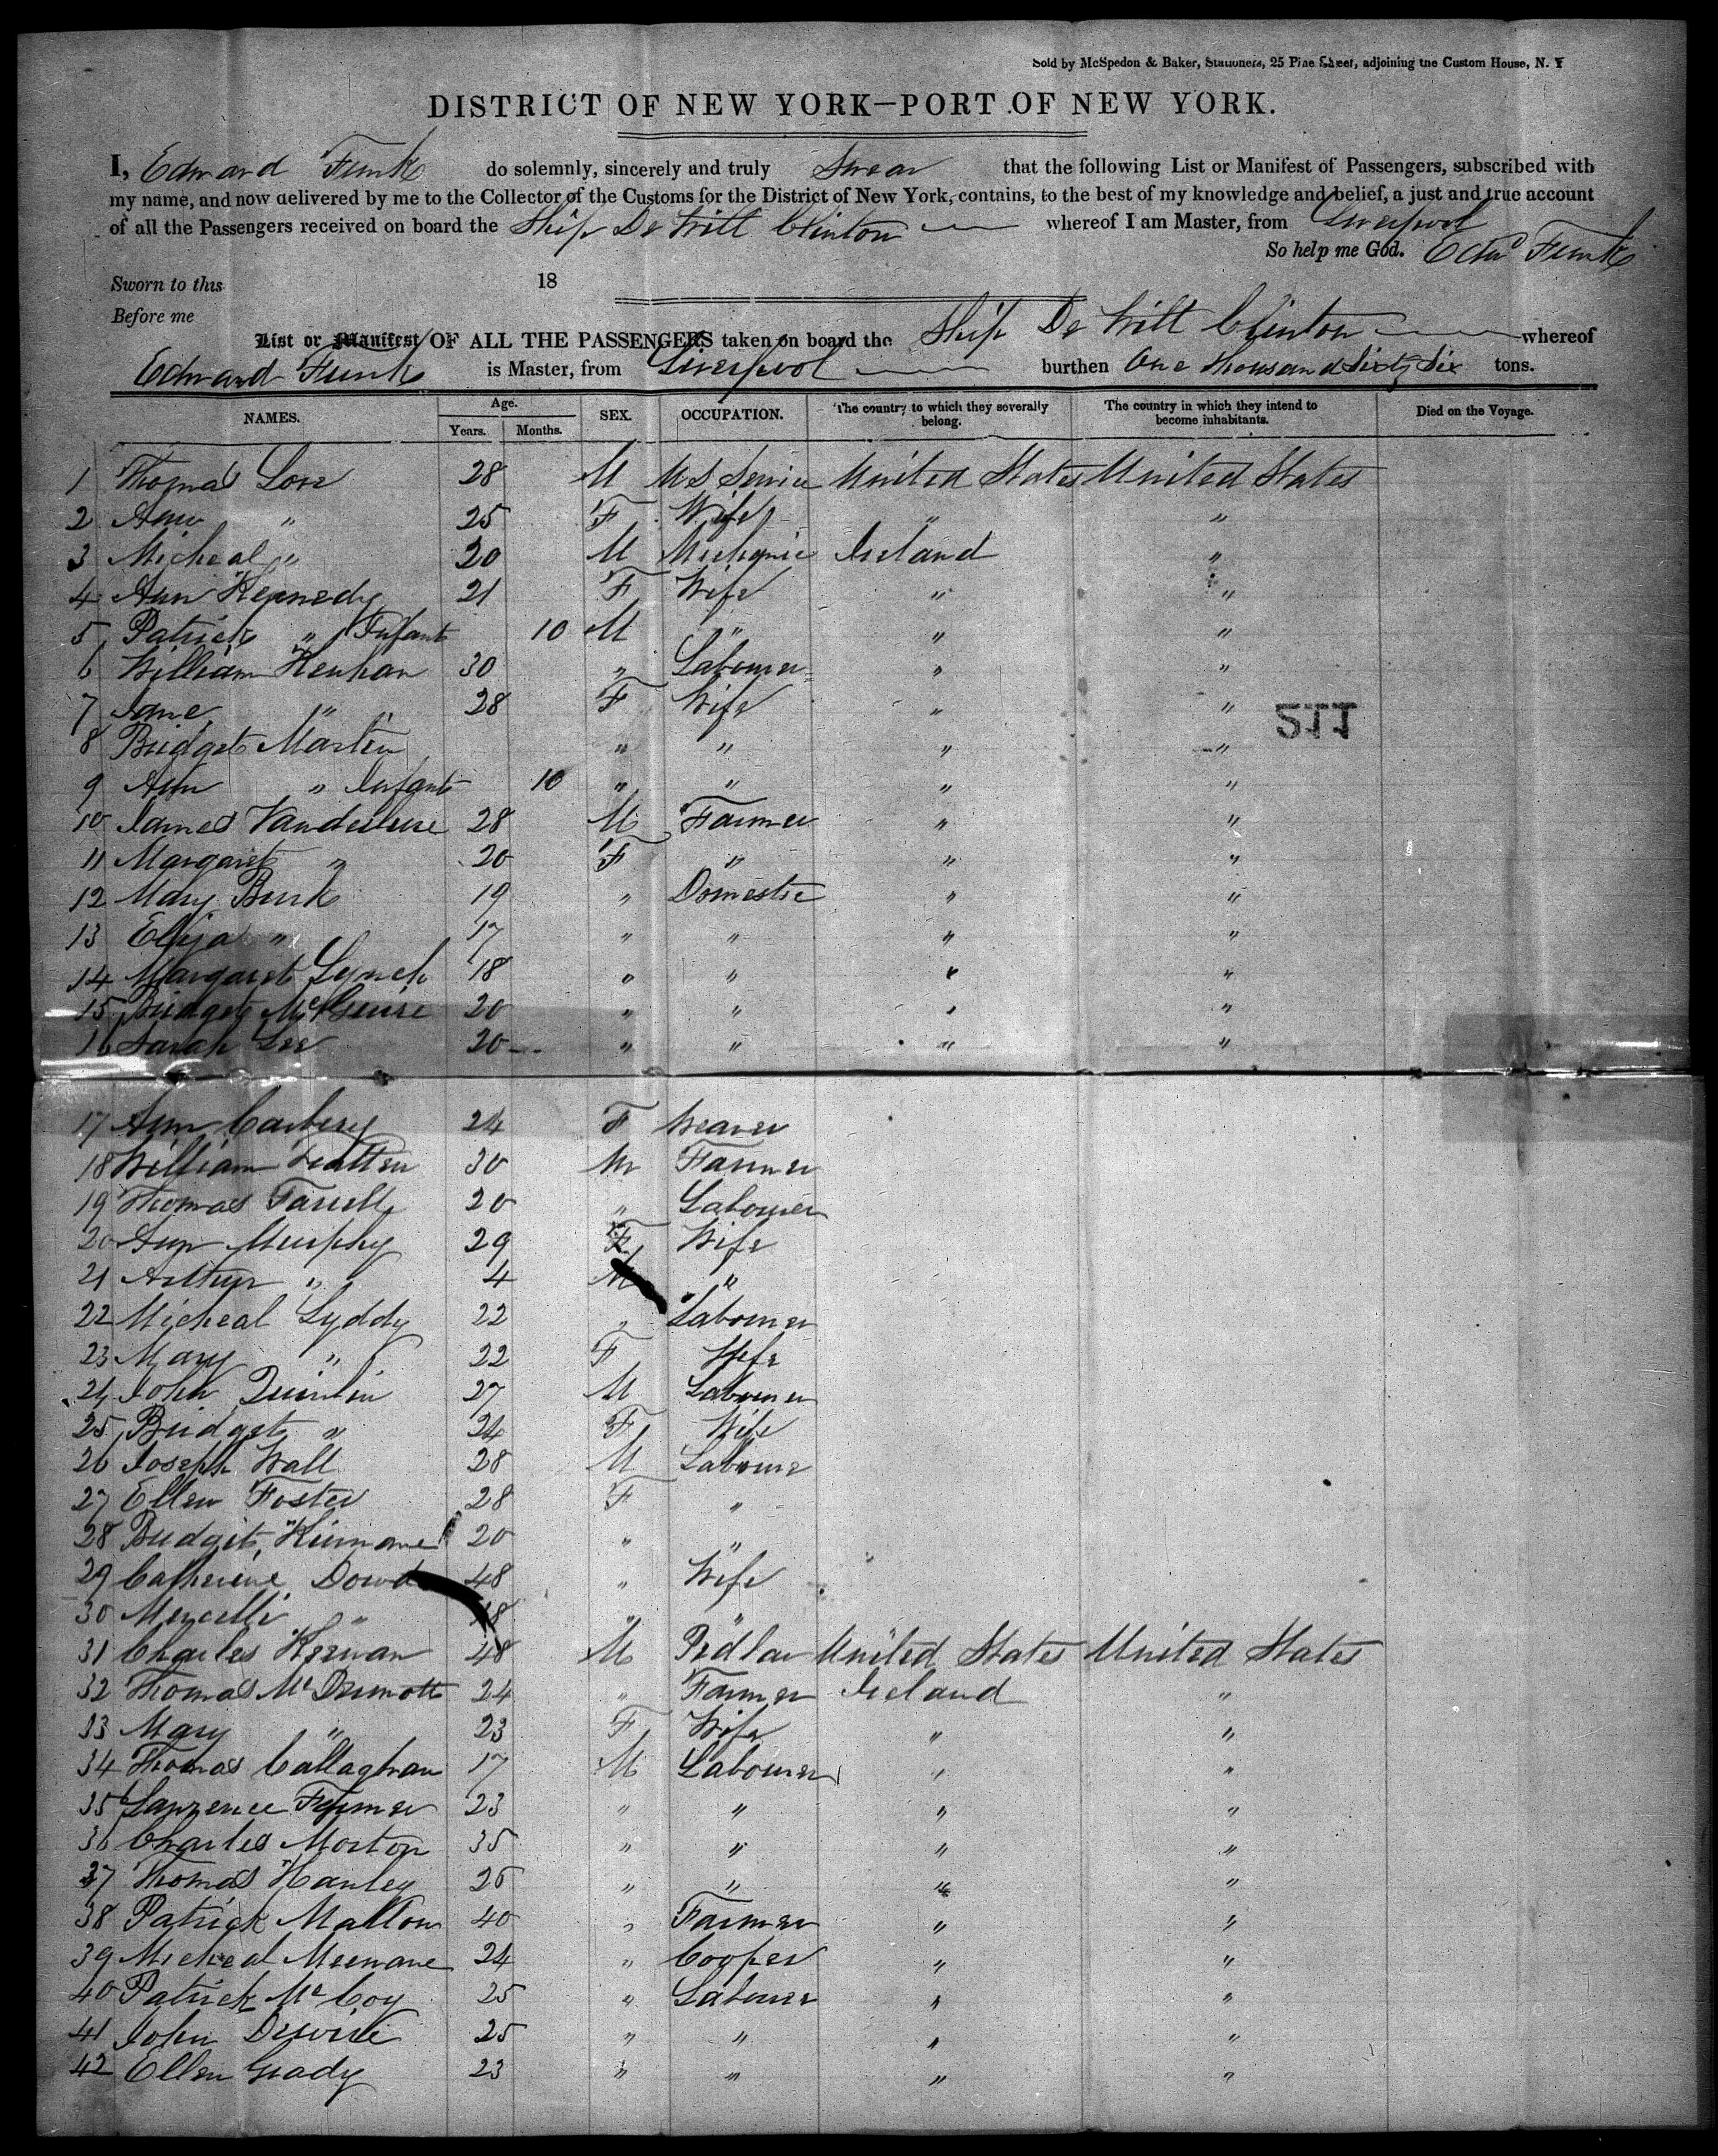 Sold by McSpedon & Baker, Stationers, 25 Pine Street, adjoining the Custom House, N. Y
DISTRICT OF NEW YORK—PORT OF NEW YORK.
I, Edward Funk do solemnly, sincerely and truly Swear that the following List or Manifest of Passengers, subscribed with
my name, and now delivered by me to the Collector of the Customs for the District of New York, contains, to the best of my knowledge and belief, a just and true account
of all the Passengers received on board the Ship De Witt Clinton whereof I am Master, from Liverpool
So help me God. Edwd Funk
Sworn to this 18
Before me
List or Manifest OF ALL THE PASSENGERS taken on board the Ship De Witt Clinton whereof
Edward Funk is Master, from Liverpool burthen One Thousand Sixty Six tons.
NAMES. Age. Years. Months. SEX. OCCUPATION. The country to which they severally belong. The country in which they intend to become inhabitants. Died on the Voyage.
1 Thomas Love 28 M U S Service United States United States
2 Ann " 25 F Wife " "
3 Micheal " 20 M Mechanic Ireland "
4 Ann Kennedy 21 F Wife " "
5 Patrick " Infant 10 M " " "
6 William Henhan 30 " Labourer " "
7 Jane " 28 F Wife " "
211
8 Bridget Martin " " " "
9 Ann " Infant 10 " " " "
10 James 28 M Farmer " "
11 Margaret " 20 F " " "
12 Mary Burk 19 " Domestic " "
13 Eliza " 17 " " " "
14 Margaret Lynch 18 " " " "
15 Bridget McGuire 20 " " " "
16 Sarah Lee 20 " " " "
17 Ann Carbery 24 F Weaver
18 William 30 M Farmer
19 Thomas Farrell 20 " Labourer
20 Ann Murphy 29 F Wife
21 Arthur " 4 M "
22 Micheal Lyddy 22 " Labourer
23 Mary " 22 F Wife
24 John Quinlin 27 M Labourer
25 Bridget " 24 F Wife
26 Joseph Wall 28 M Labourer
27 Ellen Foster 28 F "
28 Bridget 20 " "
29 Catherine Dowd 48 " Wife
30 " 18 " "
31 Charles Keewan 48 M Pedlar United States United States
32 Thomas McDermott 24 " Farmer Ireland "
33 Mary " 23 F Wife " "
34 Thomas Callaghan 17 M Labourer " "
35 Lawrence 23 " " " "
36 Charles Morton 35 " " " "
37 Thomas Hanley 26 " " " "
38 Patrick Mallon 40 " Farmer " "
39 Micheal Meenane 24 " Cooper " "
40 Patrick McCoy 25 " Labourer " "
41 John 25 " " " "
42 Ellen Grady 23 " " " "